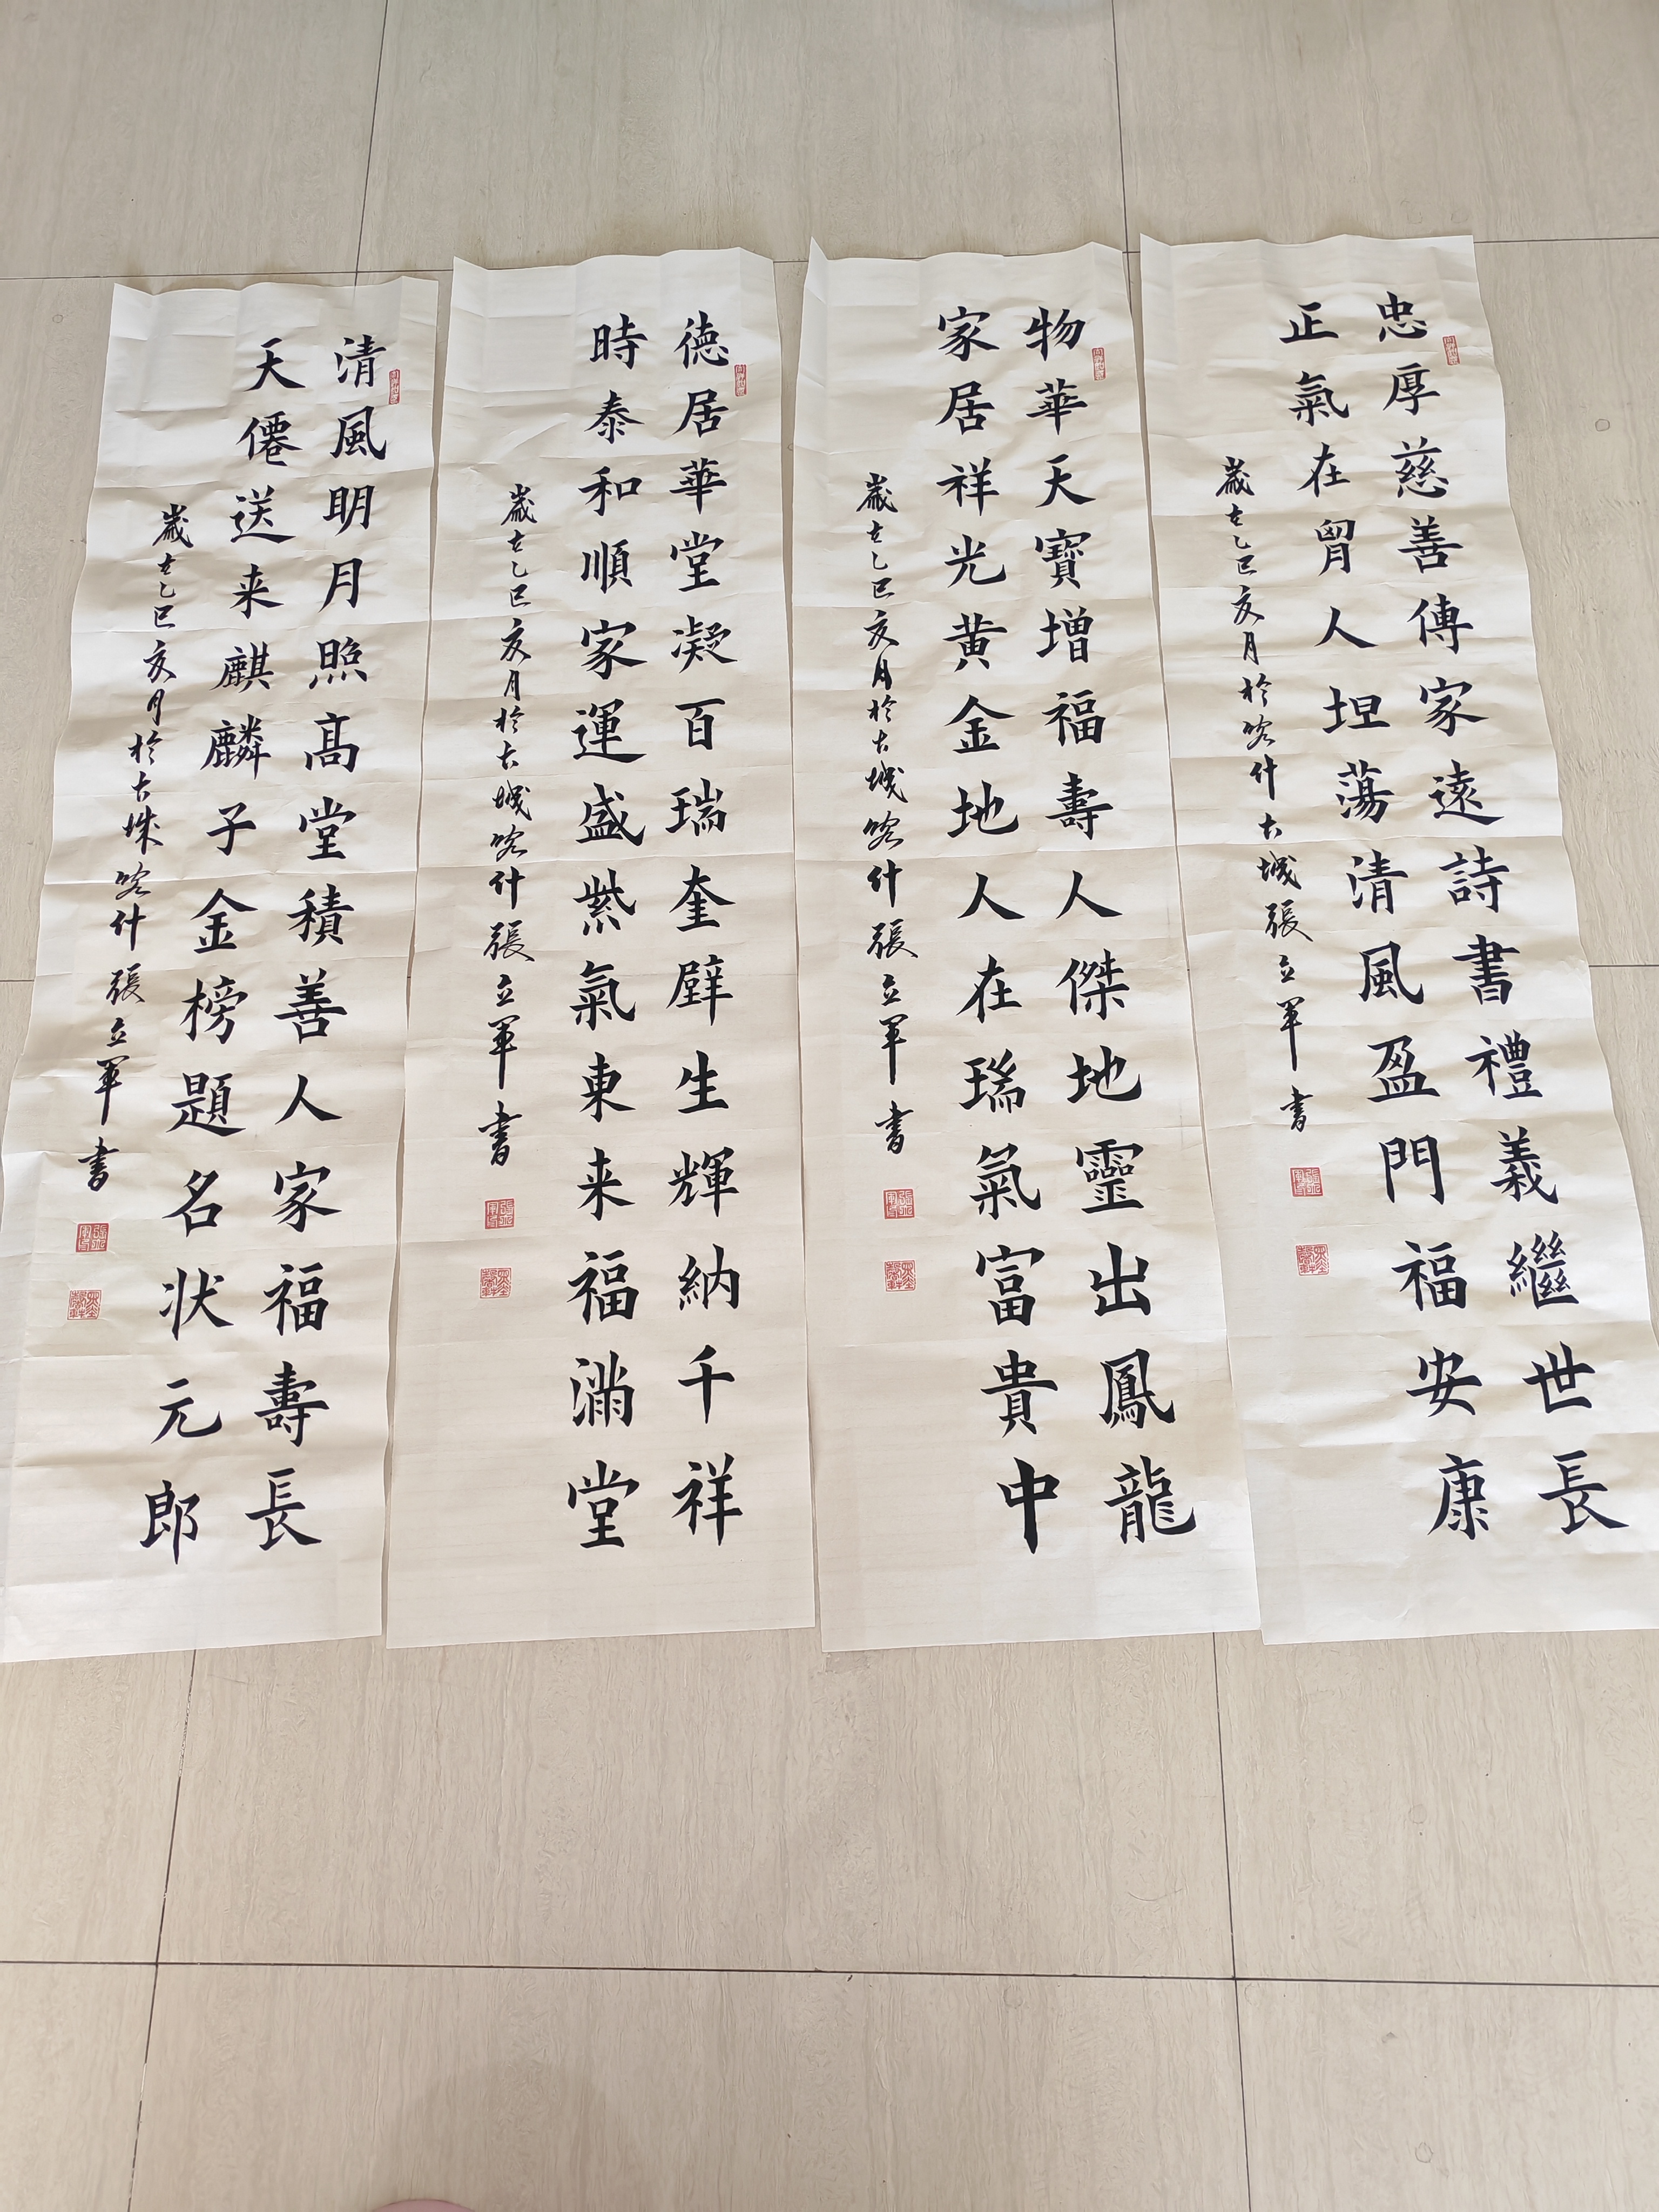 忠厚慈善傳家遠詩書禮義繼世長
正氣在胷人坦蕩清風盈門福安康
歲在乙巳亥月於喀什古城張立軍書
物華天寶增福壽人傑地靈出鳳龍
家居祥光黄金地人在瑞氣富貴中
歲在乙巳亥月於古城喀什張立軍書
德居華堂凝百瑞奎壁生輝納千祥
時泰和順家運盛紫氣東来福滿堂
歲在乙巳亥月於古城喀什張立軍書
清風明月照髙堂積善人家福壽長
天僊送来麒麟子金榜題名状元郎
歲在乙巳亥月於古城喀什張立軍書